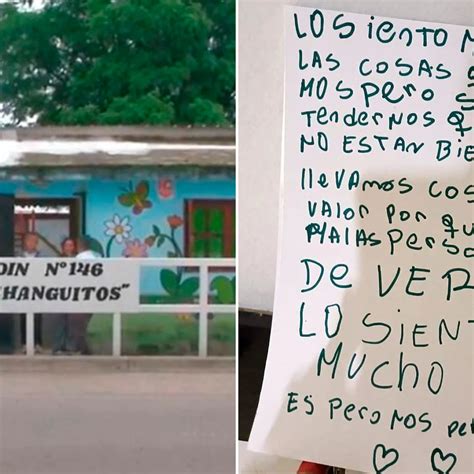 DIN Nº146
HANGUITOS"
LO Siento M
LAS COSAS
MOS pero
TenderNOS QU
NO ESTAN BIE
llevamos cos
VALOR POR qu
MALAS perso
DE VER
LO SIENT
MUCHO
ES PERO NOS per